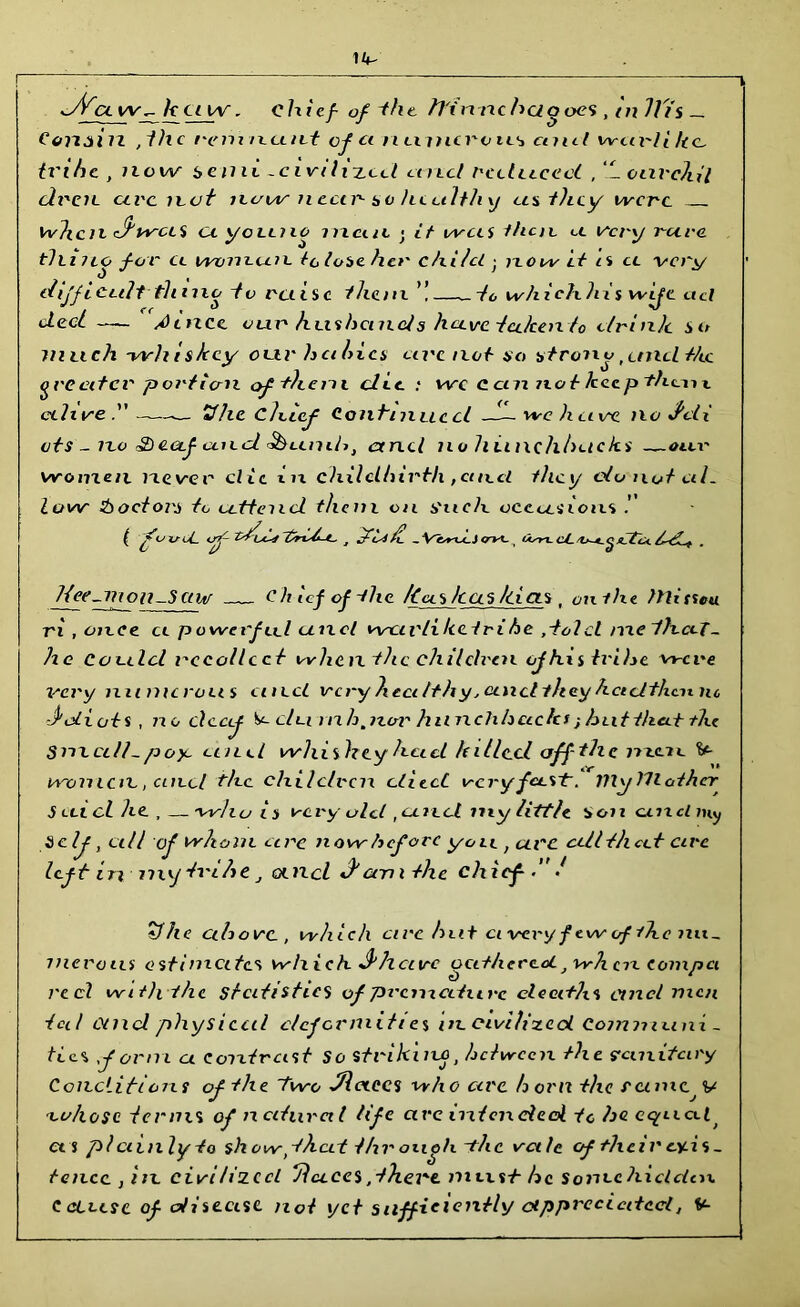 14
Naw-kaw. chief of the Winnebagoes, in Wis_
consin, the remnant of a numerous and warlike
tribe, now semi-civilized and reduced, "_ our chil
dren are not now near so healthy as they were —
when I was a young man; it was then a very rare
thing for a woman to lose her child; now it is a very
difficult thing to raise them", — to which his wife ad
ded — "Since our husbands have taken to drink so
much whiskey our babies are not so strong, and the
greater portion of them die: we cannot keep them
alive." —— The Chief continued —"we have no Idi
ots _ no Deaf and Dumb, and no hunchbacks — our
women never die in childbirth, and they do not al_
low Doctors to attend them on such occasions."
Kee-mon-Saw — Chief of the Kaskaskias, on the Missou
ri, once a powerful and warlike tribe, told me that_
he could recollect when the children of his tribe were
very numerous and very healthy, and they had then no
Idiots, no deaf & dumb, nor hunchbacks; but that the
Small-pox and whiskey had killed off the men &
women, and the children died very fast. "My Mother
said he, — who is very old, and my little son and my
self, all of whom are now before you, are all that are
left in my tribe, and I am the chief."!
The above, which are but a very few of the nu_
merous estimates which I have gathered, when compa
red with the statistics of premature deaths and men
tal and physical deformities in civilized commun i_
ties, form a contrast so striking, between the sanitary
Conditions of the two Races who are born the same, &
whose terms of natural life are intended to be equal,
as plainly to show, that through the vale of their exis_
tence, in civilized Races, there must be some hidden
cause of disease not yet sufficiently appreciated, &